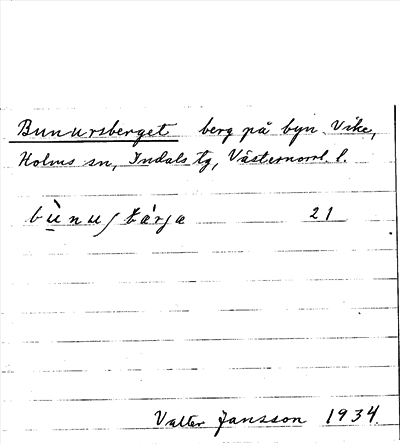 Bunursberget berg på byn Vike,
Holms sn, Indals tg, Västernorrl. l.
bùnuʃbárja 21
Valter Jansson 1934.